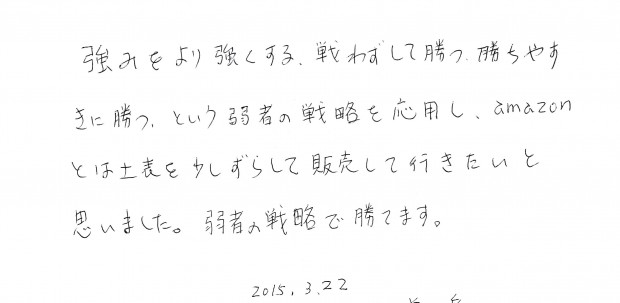 強みをより強くする、戦わずして勝つ、勝ちやす
きに勝つ、という弱者の戦略を応用し、amazon
とは土表を少しずらして販売して行きたいと
思いました。弱者の戦略で勝てます。
2015, 3.22